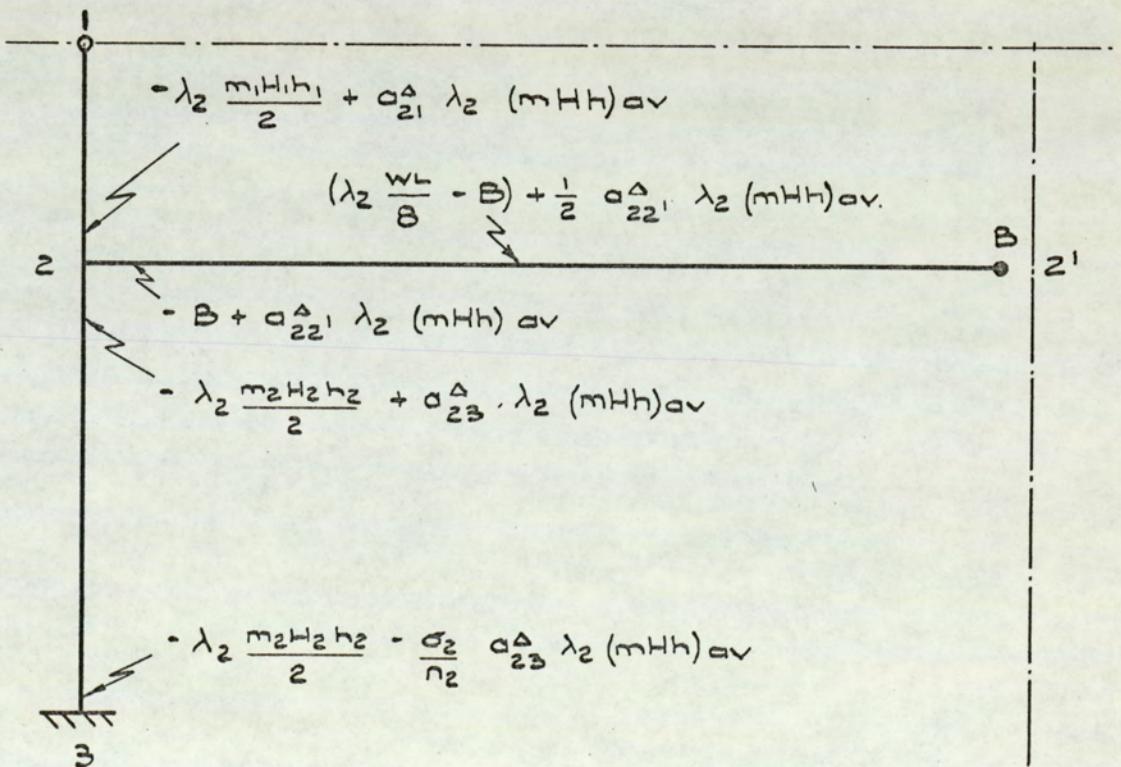 1
- λ₂ m₁H₁h₁/2 + a₂₁^Δ λ₂ (mHh)av
(λ₂ WL/8 - B) + 1/2 a₂₂'^Δ. λ₂ (mHh)av.
B
2
2'
- B + a₂₂'^Δ λ₂ (mHh) av
- λ₂ m₂H₂h₂/2 + a₂₃^Δ. λ₂ (mHh)av
- λ₂ m₂H₂h₂/2 - σ₂/n₂ a₂₃^Δ λ₂ (mHh)av
3